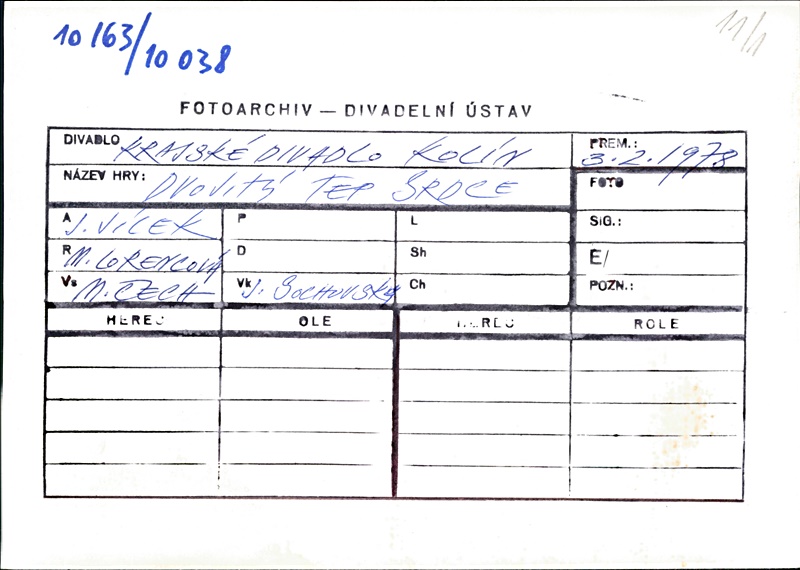 10 163/10 038
11/1
FOTOARCHIV — DIVADELNÍ ÚSTAV
DIVADLO KRAJSKÉ DIVADLO KOLÍN
PREM.: 3.2.1978
NÁZEV HRY: DVOJITÝ TEP SRDCE
FOTO
A J. VÍCEK P L SIG.:
R M. LORENCOVÁ D Sh E/
Vs M. CZECH Vk J. SOCHOVSKÝ Ch POZN.:
HEREC OLE HEREC ROLE